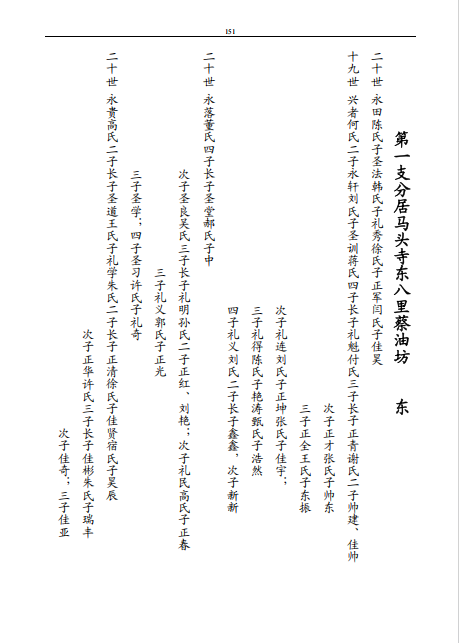 151
第一支分居马头寺东八里蔡油坊 东
二十世 永田陈氏子圣法韩氏子礼秀徐氏子正军闫氏子佳昊
十九世 兴者何氏二子永轩刘氏子圣训蒋氏四子长子礼魁付氏三子长子正青谢氏二子帅建、佳帅
次子正才张氏子帅东
三子正全王氏子东振
次子礼连刘氏子正坤张氏子佳宇；
三子礼得陈氏子艳涛甄氏子浩然
四子礼义刘氏二子长子鑫鑫，次子新新
二十世 永落董氏四子长子圣堂郝氏子中
次子圣良吴氏三子长子礼明孙氏二子正红、刘艳；次子礼民高氏子正春
三子礼义郭氏子正光
三子圣学；四子圣习许氏子礼奇
二十世 永贵高氏二子长子圣道王氏子礼学朱氏二子长子正清徐氏子佳贤宿氏子昊辰
次子正华许氏三子长子佳彬朱氏子瑞丰
次子佳奇；三子佳亚